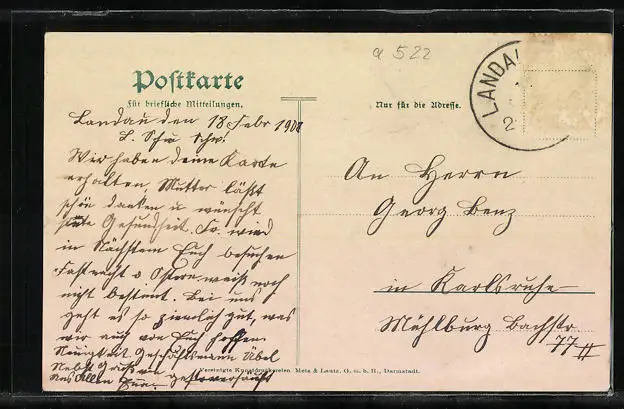 a 522
LANDAU
Postkarte
Für briefliche Mitteilungen.
Nur für die Adresse.
Landau den 18 Febr 1908
L. Schw
Wir haben deine Karte
erhalten, Mutter läßt
schön danken u wünscht
gute Gesundheit. wird
in Nächstem Euch besuchen
Fastnacht o Ostern weiß noch
nicht bestimt. Bei uns
geht es so ziemlich gut, was
wir auch von Euch hoffen
Nebst Gruß
An Herrn
Georg Benz
in Karlsruhe
Mühlburg Bachstr.
77 II
Vereinigte Kunstdruckereien Metz & Lautz, G. m. b. H., Darmstadt.